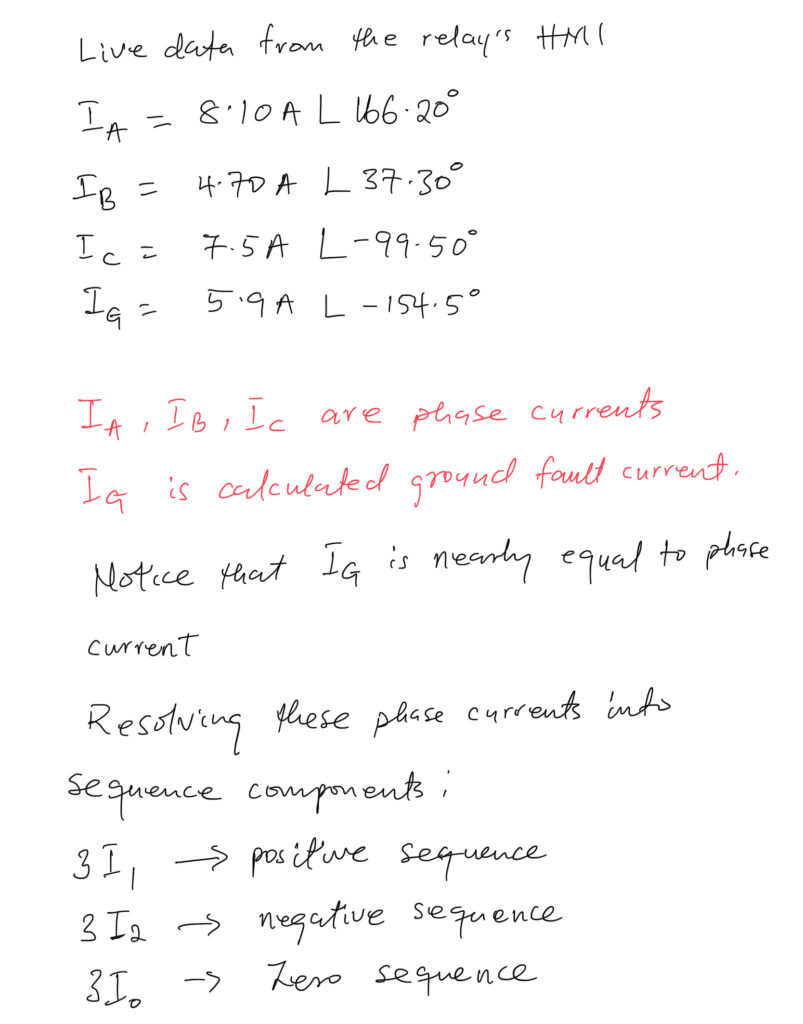 Live data from the relay's HMI
I_A = 8.10 A ∟ 166.20°
I_B = 4.70 A ∟ 37.30°
I_C = 7.5 A ∟ -99.50°
I_G = 5.9 A ∟ -154.5°
I_A, I_B, I_C are phase currents
I_G is calculated ground fault current.
Notice that I_G is nearly equal to phase
current
Resolving these phase currents into
sequence components:
3I_1 → positive sequence
3I_2 → negative sequence
3I_0 → Zero sequence